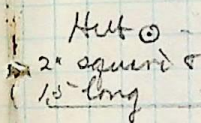 Hut ⊙
2" square &
15 long